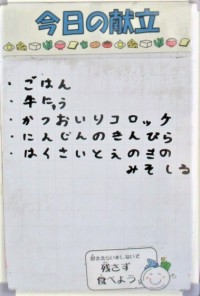 今日の献立
・ごはん
・牛にゅう
・かつおいりコロッケ
・にんじんのきんぴら
・はくさいとえのきの
みそしる
好ききらいをしないで
残さず
食べよう